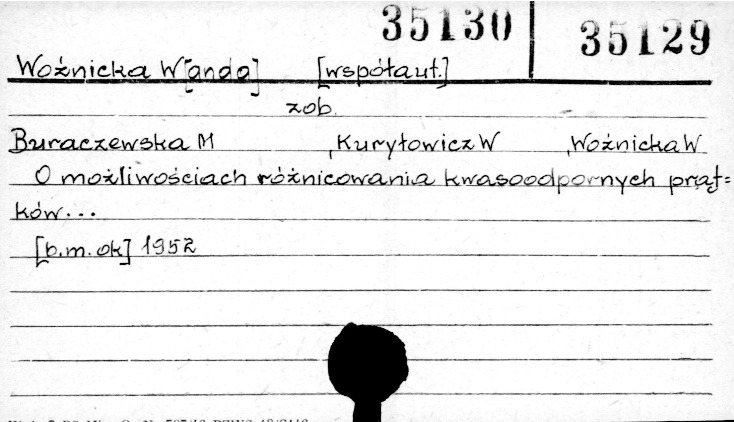 35130 35129
Woźnicka W[anda] [współaut.]
zob.
Buraczewska M , Kuryłowicz W , Woźnicka W
O możliwościach różnicowania kwasoodpornych prąt=
ków...
[b.m.ok] 1952